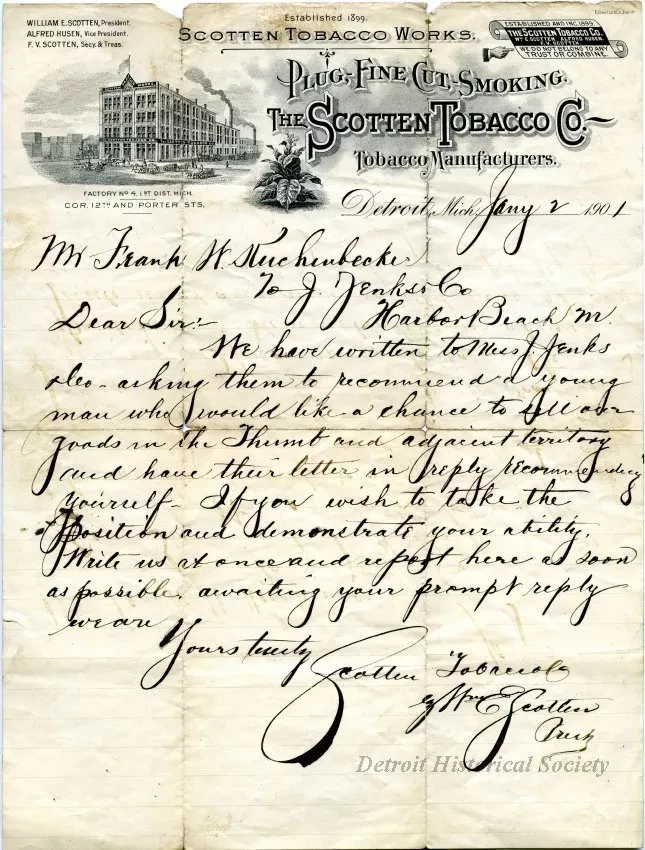 WILLIAM E. SCOTTEN, President.
ALFRED HUSEN, Vice President.
F. V. SCOTTEN, Secy. & Treas.
Established 1899.
SCOTTEN TOBACCO WORKS.
ESTABLISHED AND INC. 1899
THE SCOTTEN TOBACCO CO.
WM E. SCOTTEN, ALFRED HUSEN,
F. V. SCOTTEN
WE DO NOT BELONG TO ANY
TRUST OR COMBINE.
PLUG, FINE CUT, SMOKING.
THE SCOTTEN TOBACCO CO.
Tobacco Manufacturers.
FACTORY NO 4. 1ST DIST. MICH.
COR. 12TH AND PORTER STS.
Detroit, Mich, Jany 2 1901
Mr Frank W. Kuchenbecker
To J. Jenks & Co
Dear Sir:- Harbor Beach M.
We have written to Mess J. Jenks
& Co - asking them to recommend a young
man who would like a chance to sell our
goods in the Thumb and adjacent territory
and have their letter in reply recommending
yourself - If you wish to take the
position and demonstrate your ability.
Write us at once and report here as soon
as possible. awaiting your prompt reply
we are
Yours truly
Scotten Tobacco Co
By Wm E Scotten
Prest
Detroit Historical Society